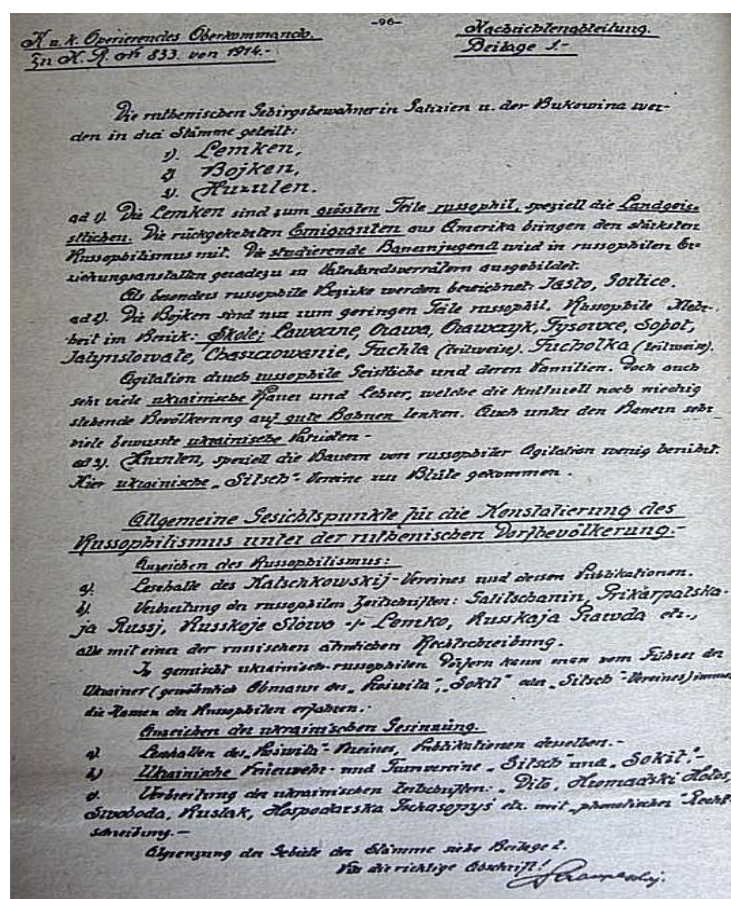 -96-
K. u. k. Operierendes Oberkommando.
Nachrichtenabteilung.
Zu K. Nr 833. von 1914.-
Beilage 1.-
Die ruthenischen Gebirgsbewohner in Galizien u. der Bukowina wer-
den in drei Stämme geteilt:
1). Lemken,
2) Bojken,
3). Huzulen.
ad 1). Die Lemken sind zum grössten Teile russophil, speziell die Landgeis-
tlichen. Die rückgekehrten Emigranten aus Amerika bringen den stärksten
Russophilismus mit. Die studierende Bauernjugend wird in russophilen Er-
ziehungsanstalten geradezu zu Vaterlandsverrätern ausgebildet.
Als besonders russophile Bezirke werden bezeichnet: Jasło, Gorlice.
ad 2). Die Bojken sind nur zum geringen Teile russophil. Russophile Mehr-
heit im Bezirk: Skole; Ławoczne, Orawa, Orawczyk, Tysowce, Sopot,
Jalynkowate, Chaszczowanie, Tuchla (teilweise). Tucholka (teilweise).
Agitation durch russophile Geistliche und deren Familien. Doch auch
sehr viele ukrainische Pfarrer und Lehrer, welche die kulturell noch niedrig
stehende Bevölkerung auf gute Bahnen lenken. Auch unter den Bauern sehr
viele bewusste ukrainische Patrioten -
ad 3). Huzulen, speziell die Bauern von russophiler Agitation wenig berührt.
Hier ukrainische „Sitsch"-Vereine zur Blüte gekommen.
Allgemeine Gesichtspunkte für die Konstatierung des
Russophilismus unter der ruthenischen Dorfbevölkerung.-
Anzeichen des Russophilismus:
a). Lesehalle des Katschkowskij-Vereines und dessen Publikationen.
b). Verbreitung der russophilen Zeitschriften: Galitschanin, Prikarpatska-
ja Russj, Russkoje Slowo -/- Lemko, Russkaja Prawda etc.,
alle mit einer der russischen ähnlichen Rechtschreibung.
In gemischt ukrainisch-russophilen Dörfern kann man vom Führer der
Ukrainer (gewöhnlich Obmann des „Proswita", „Sokil" oder „Sitsch"-Vereines) immer
die Namen der Russophilen erfahren.
Anzeichen der ukrainischen Gesinnung.
a) Lesehallen des „Proswita"-Vereines, Publikationen desselben.-
b) Ukrainische Feuerwehr- und Turnvereine „Sitsch und „Sokil".-
c. Verbreitung der ukrainischen Zeitschriften: „Diło, Hromadśki Hołos,
Swoboda, Rusłak, Hospodarska Tschasopyś etc. mit „phonetischer" Recht-
schreibung.-
Abgrenzung der Gebiete der Stämme siehe Beilage 2.
Für die richtige Abschrift!